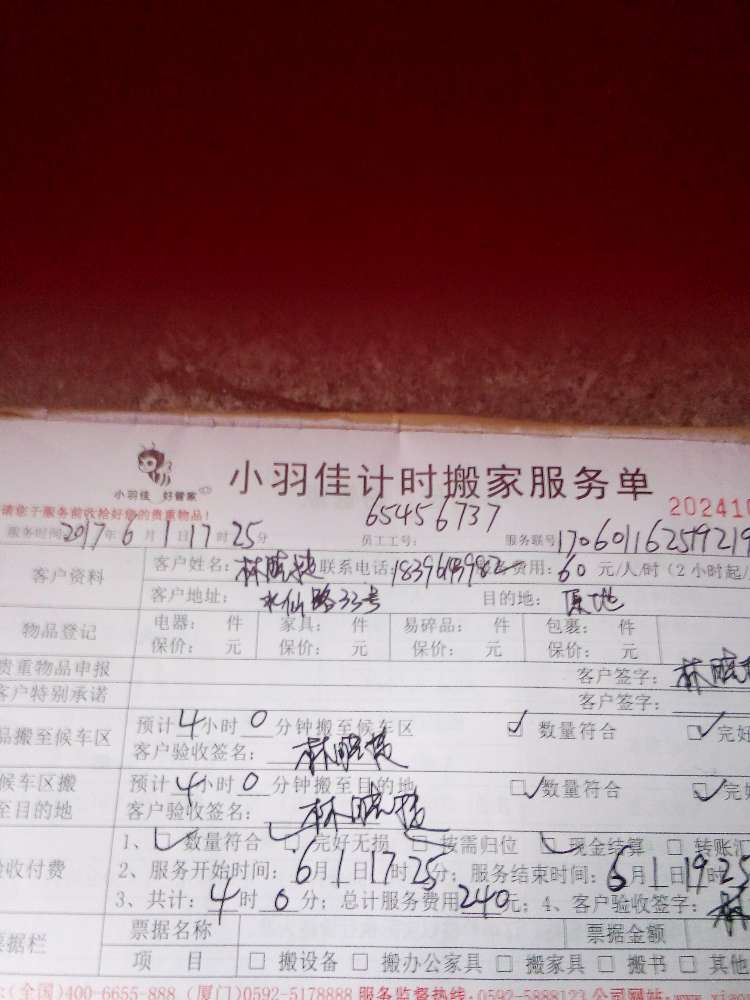 小羽佳 好管家
小羽佳计时搬家服务单
202410
请您于服务前收拾好您的贵重物品!
65456737
服务时间2017年6月1日17时25分 员工工号: 服务联号
客户资料 客户姓名: 林晓捷 联系电话: 费用: 60 元/人/时 (2小时起/
客户地址: 水仙路33号 目的地: 原地
物品登记 电器: 件 家具: 件 易碎品: 件 包裹: 件
保价: 元 保价: 元 保价: 元 保价: 元
贵重物品申报 客户签字: 林晓捷
客户特别承诺 客户签字:
品搬至候车区 预计4小时0分钟搬至候车区 ☑ 数量符合 ☑ 完好
客户验收签名: 林晓捷
候车区搬至目的地 预计4小时0分钟搬至目的地 ☑ 数量符合 ☑ 完好
客户验收签名: 林晓捷
验收付费 1、☑ 数量符合 ☑ 完好无损 □ 按需归位 ☑ 现金结算 □ 转账汇
2、服务开始时间: 6月1日17时25分; 服务结束时间: 6月1日19时25
3、共计: 4时0分; 总计服务费用240元; 4、客户验收签字: 林
票据栏 票据名称 票据金额
项 目 □ 搬设备 □ 搬办公家具 □ 搬家具 □ 搬书 □ 其他
:(全国)400-6655-888 (厦门)0592-5178888 服务监督热线:0592-5888123 公司网站:www.xiao